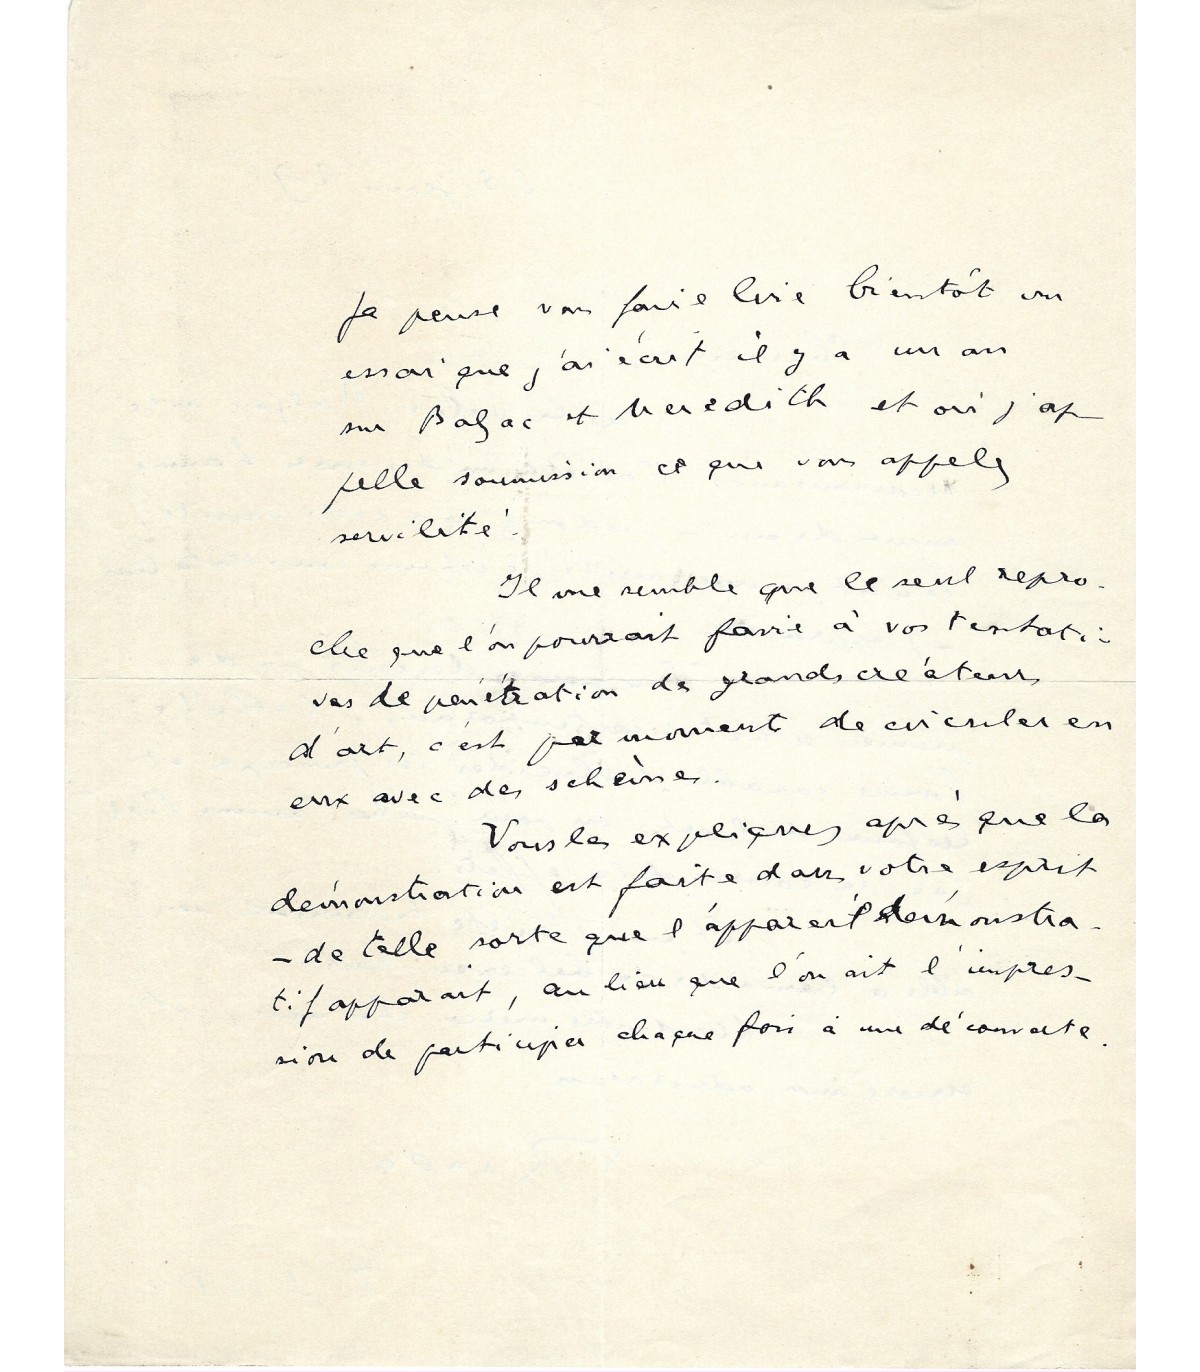 Je pense vous faire lire bientôt un
essai que j'ai écrit il y a un an
sur Balzac et Meredith et où j'ap
pelle soumission ce que vous appelez
servilité.
Il me semble que le seul repro-
che que l'on pourrait faire à vos tentati-
ves de pénétration des grands créateurs
d'art, c'est par moment de circuler en
eux avec des schèmes.
Vous les expliquez après que la
démonstration est faite dans votre esprit
- de telle sorte que l'appareil démonstra-
tif apparait, au lieu que l'on ait l'impres-
sion de participer chaque fois à une découverte.